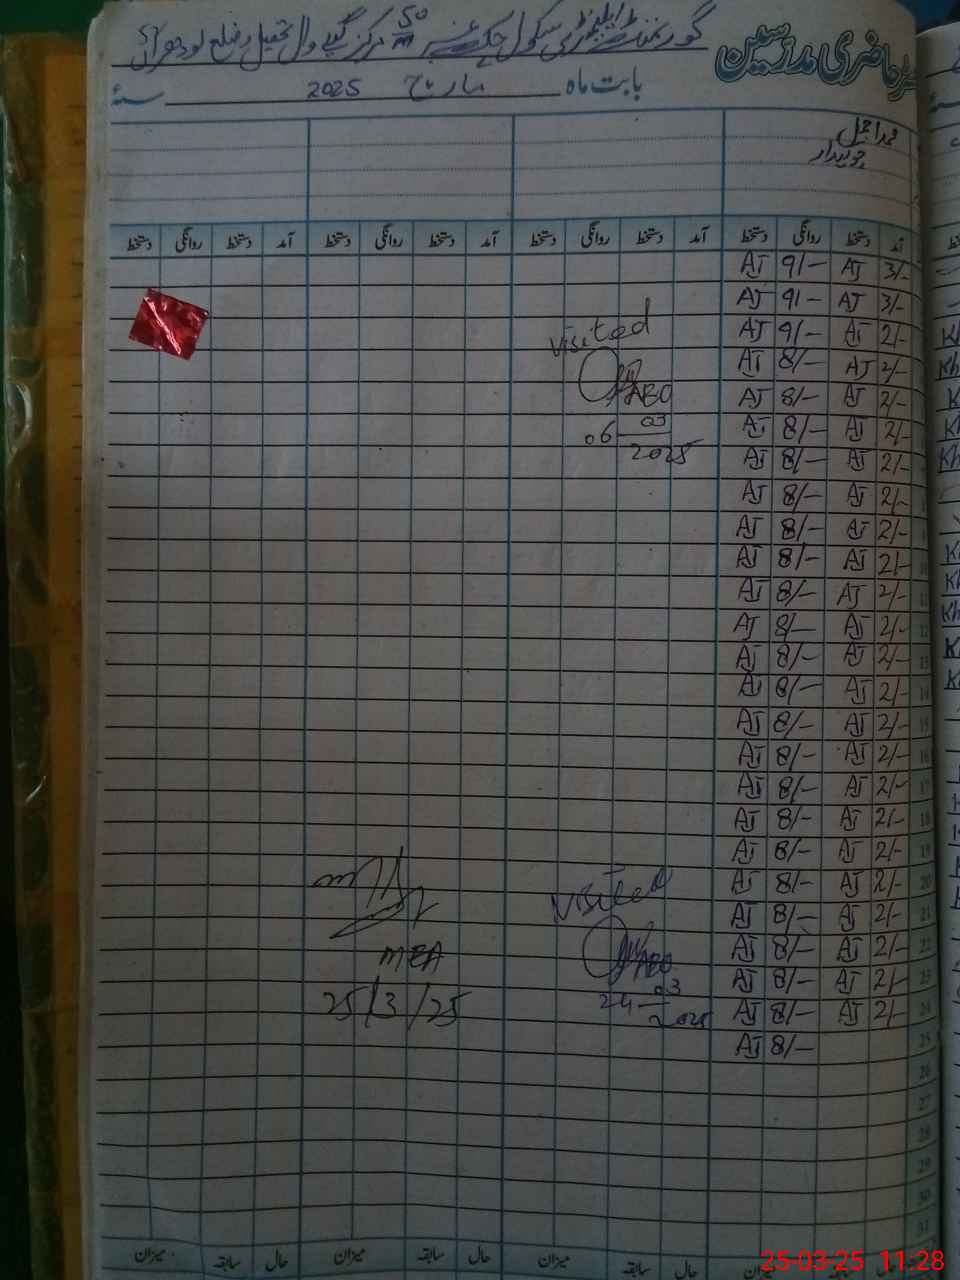 رجسٹر حاضری مدرسین گورنمنٹ ایلیمنٹری سکول چک نمبر 50/M مرکز گیلے وال تحصیل و ضلع لودھراں
بابت ماہ مارچ 2025 سنہ
محمد اجمل
چوکیدار
آمد دستخط روانگی دستخط آمد دستخط روانگی دستخط آمد دستخط روانگی دستخط
3/- AJ 9/- AJ
3/- AJ 9/- AJ
2/- AJ 9/- AJ
2/- AJ 8/- AJ
2/- AJ 8/- AJ
2/- AJ 8/- AJ
2/- AJ 8/- AJ
2/- AJ 8/- AJ
2/- AJ 8/- AJ
2/- AJ 8/- AJ
2/- AJ 8/- AJ
12 2/- AJ 8/- AJ
13 2/- AJ 8/- AJ
14 2/- AJ 8/- AJ
15 2/- AJ 8/- AJ
16 2/- AJ 8/- AJ
17 2/- AJ 8/- AJ
18 2/- AJ 8/- AJ
19 2/- AJ 8/- AJ
20 2/- AJ 8/- AJ
21 2/- AJ 8/- AJ
22 2/- AJ 8/- AJ
23 2/- AJ 8/- AJ
24 2/- AJ 8/- AJ
25 8/- AJ
26
27
28
29
30
31
Visited
AEO
06 03
2025
Visited
AEO
24 03
2025
MEA
25/3/25
حال سابقہ میزان حال سابقہ میزان
25-03-25 11:28